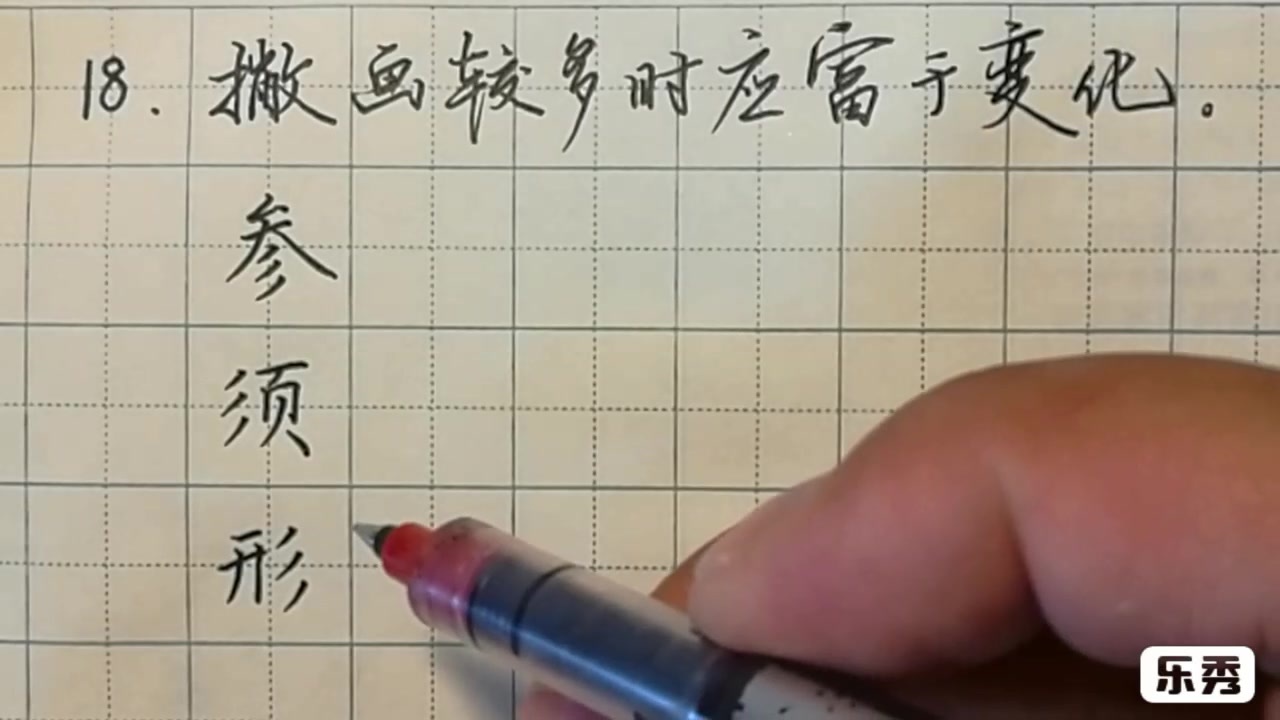 18. 撇画较多时应富于变化。
参
须
形
乐秀